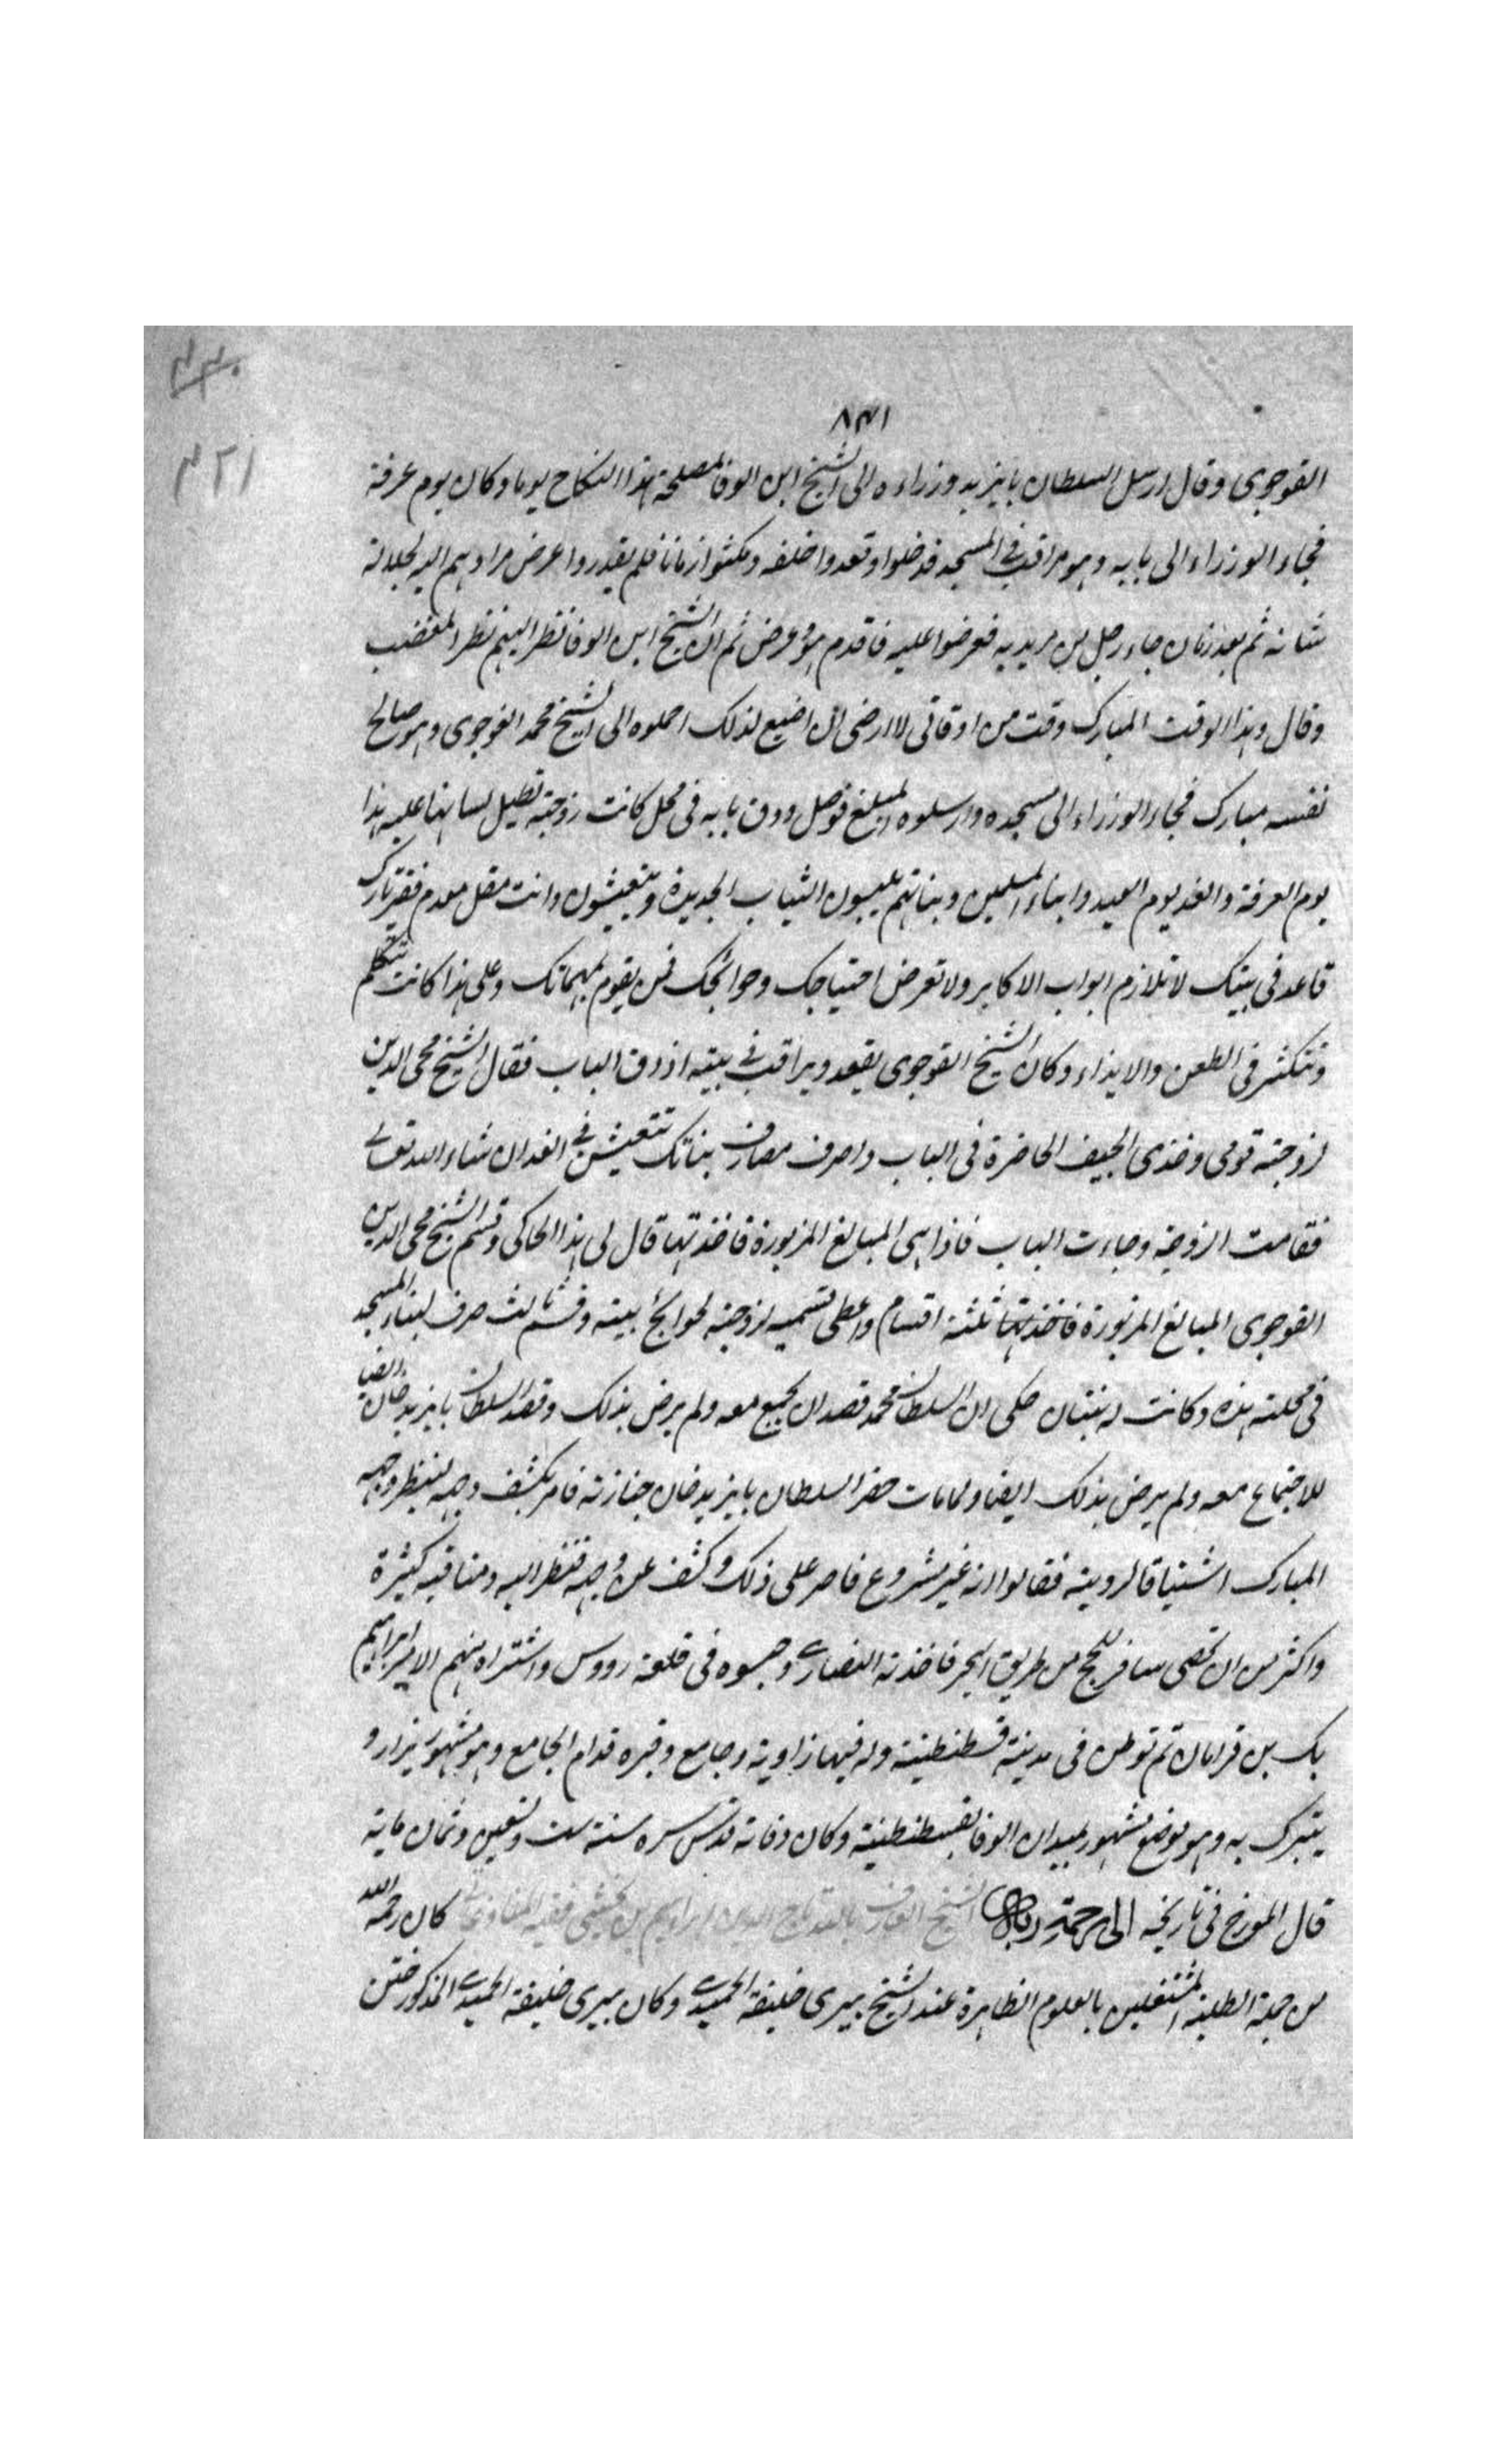 ٨٣١
٤٢١
القوجوى وقال ارسل السلطان بايزيد وزراءه الى الشيخ ابن الوفا لمصلحة هذا النكاح يوما وكان يوم عرفة
فجاء الوزراء الى بابه وهو مراقب فى المسجد فدخلوا وقعدوا خلفه ومكثوا زمانا فلم يقدروا عرض مرادهم اليه لجلالة
شانه ثم بعد زمان جاء رجل من مريديه فعرضوا عليه فاقدم هو وعرض ثم ان الشيخ ابن الوفا نظر اليهم نظر المغضب
وقال وهذا الوقت المبارك وقت من اوقاتى لا ارضى ان اضيع لذلك احملوه الى الشيخ محمد القوجوى وهو صالح
نفسه مبارك فجاء الوزراء الى مسجده وارسلوه المبلغ فوصل ودق بابه فى محل كانت زوجته تطيل لسانها عليه هذا
يوم العرفة والغد يوم العيد وابناء المسلمين وبناتهم يلبسون الثياب الجديدة ويتعيشون وانت مقل معدم فقير تارك
قاعد فى بيتك لا تلازم ابواب الاكابر ولا تعرض احتياجك وحوائجك فمن يقوم بمهماتك وعلى هذا كانت تتكلم
وتتكثر فى الطعن والايذاء وكان الشيخ القوجوى يقعد ويراقب فى بيته اذ دق الباب فقال الشيخ محى الدين
لزوجته قومى وخذى الجيف الحاضرة فى الباب واصرف مصارف بناتك تتعيش فى الغد ان شاء الله تعالى
فقامت الزوجة وجاءت الباب فاذا هى المبالغ المزبورة فاخذتها قال لى هذا الحاكى وقسم الشيخ محى الدين
القوجوى المبالغ المزبورة فاخذتها ثلثة اقسام واعطى قسميه لزوجته لحوايج بيته وقسم ثالث صرف لبناء المسجد
فى محلته هذه وكانت له بنتان حكى ان السلطان محمد قصد ان يجمع معه ولم يرض بذلك وقصد السلطان بايزيد خان ايضا
للاجتماع معه ولم يرض بذلك ايضا ولما مات حضر السلطان بايزيد خان جنازته فامر بكشف وجهه لينظر وجهه
المبارك اشتياقا لرويته فقالوا انه غير مشروع فاصر على ذلك وكشف عن وجهه فنظر اليه ومناقبه كثيرة
واكثر من ان تحصى سافر للحج من طريق البحر فاخذته النصارى وحبسوه فى قلعة رودس واشتراه منهم الامير ابراهيم
بك بن قرامان ثم توطن فى مدينة قسطنطينية وله فيها زاوية وجامع وقبره قدام الجامع وهو مشهور يزار و
يتبرك به وهو موضع مشهور بميدان الوفا بقسطنطنية وكان وفاته قدس سره سنة ست وتسعين وثمان ماية
قال المورخ فى تاريخه الى رحمة ربه الشيخ العارف بالله تاج الدين ابراهيم بن بخشى فقيه كان رحمه الله
من جملة الطلبة المشتغلين بالعلوم الظاهرة عند الشيخ بيرى خليفة الحميدى وكان بيرى خليفة الحميدى المذكور ختن